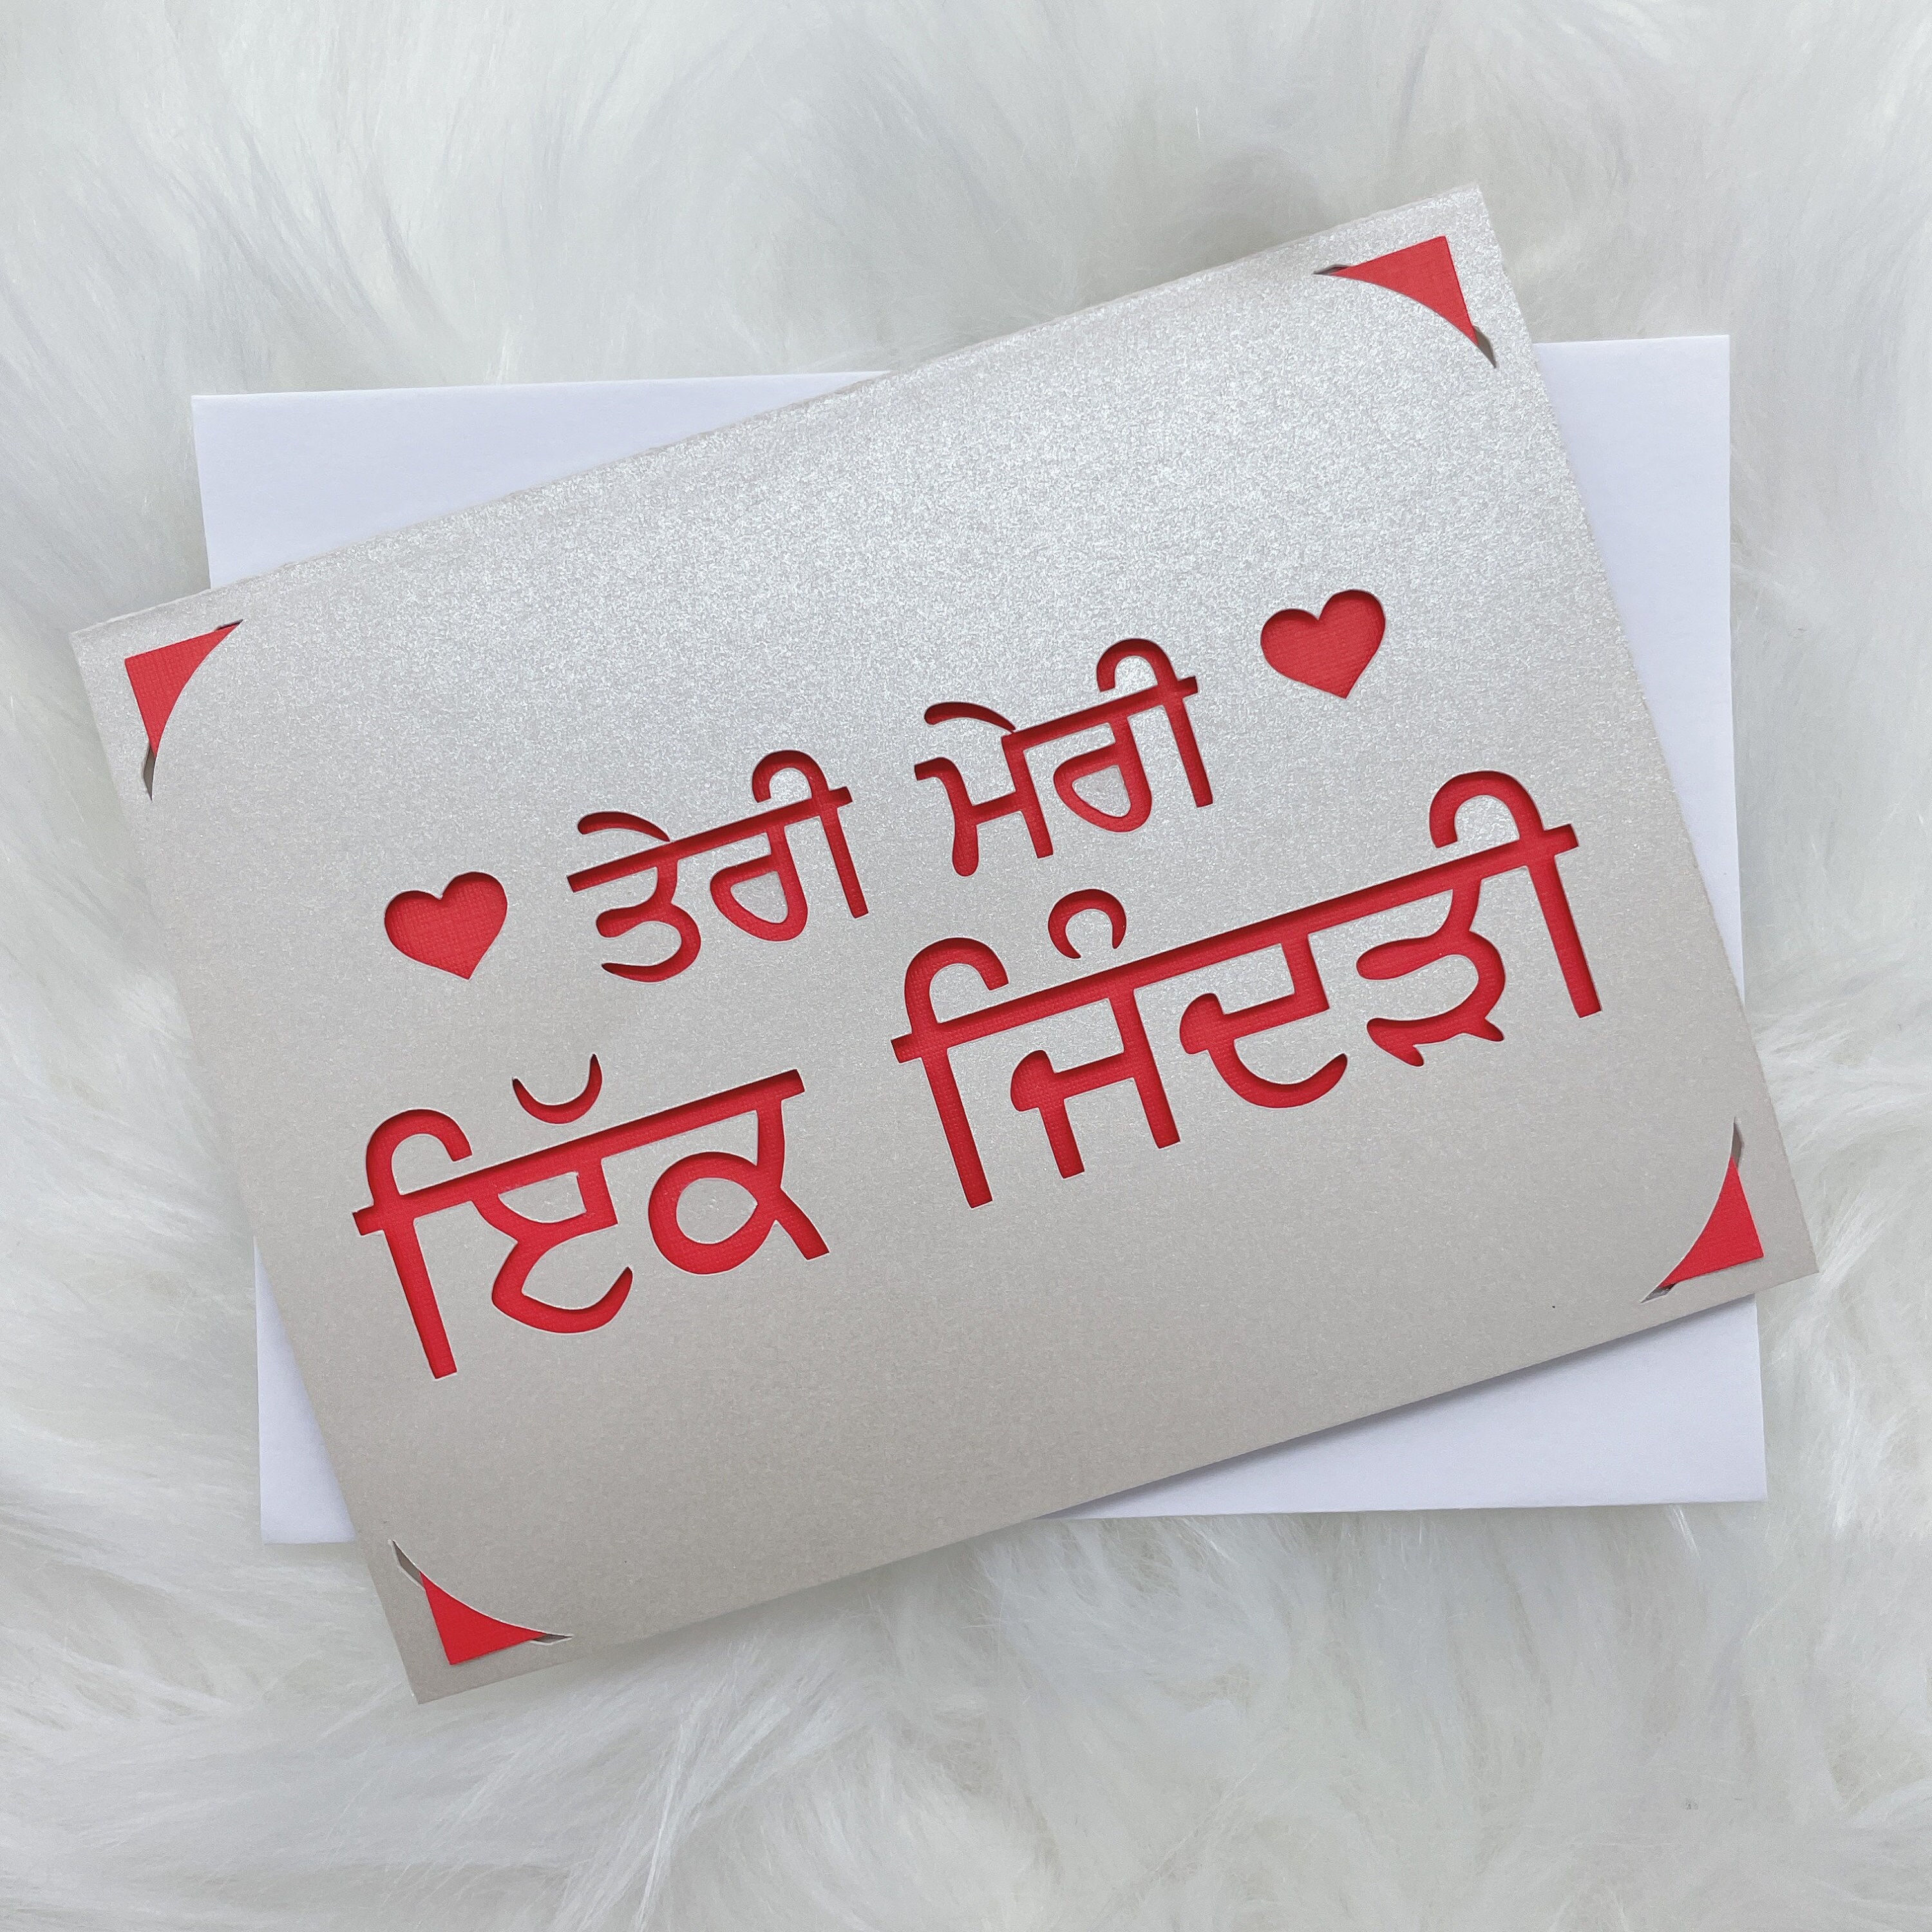 ਤੇਰੀ ਮੇਰੀ
ਇੱਕ ਜਿੰਦੜੀ